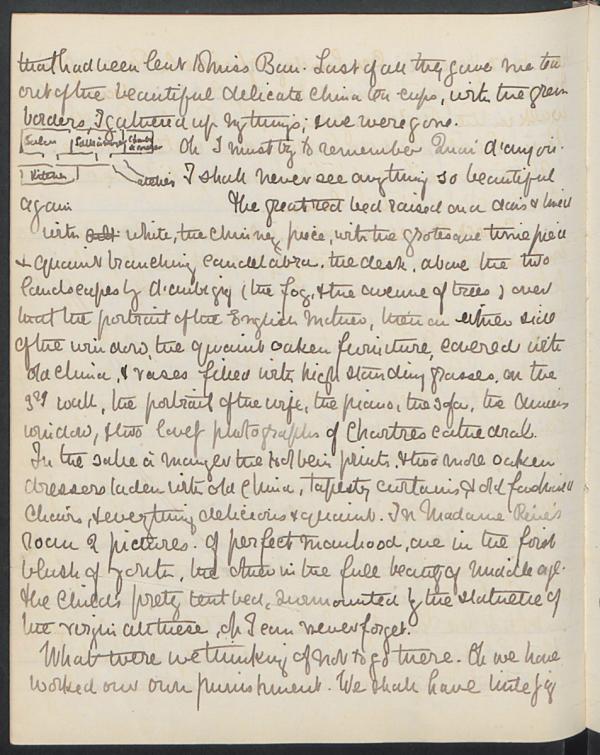 that had been lent to Miss Bau. Last of all they gave me tea
out of the beautiful delicate china tea cups, with the green
borders, I gathered up my things; & we were gone.
Salon Salle à manger
Oh I must try to remember Quai d'anjou.
Kitchen
I shall never see anything so beautiful
again The great red bed raised on a dais & lined
with white, the chimney piece, with the grotesque time piece
& quaint branching candelabra, the desk, above the two
landscapes by d'aubigny (the fog, & the avenue of trees) over
that the portrait of the English mother, then on either side
of the window, the quaint oaken furniture, covered with
old china, & vases filled with high standing grasses, on the
3rd wall, the portrait of the wife, the piano, the sofa, the
window, & two large photographs of Chartres cathedral.
In the salle à manger the Holbein prints, & two more oaken
dressers laden with old china, tapestry curtains & old fashioned
chairs, & everything delicious & quaint. In Madame René's
room 2 pictures. of perfect manhood, one in the first
blush of youth, the other in the full beauty of middle age.
The child's pretty tent bed, surmounted by the statuette of
the virgin all these, oh I can never forget.
What were we thinking of not to go there. Oh we have
worked our own punishment. We shall have little joy